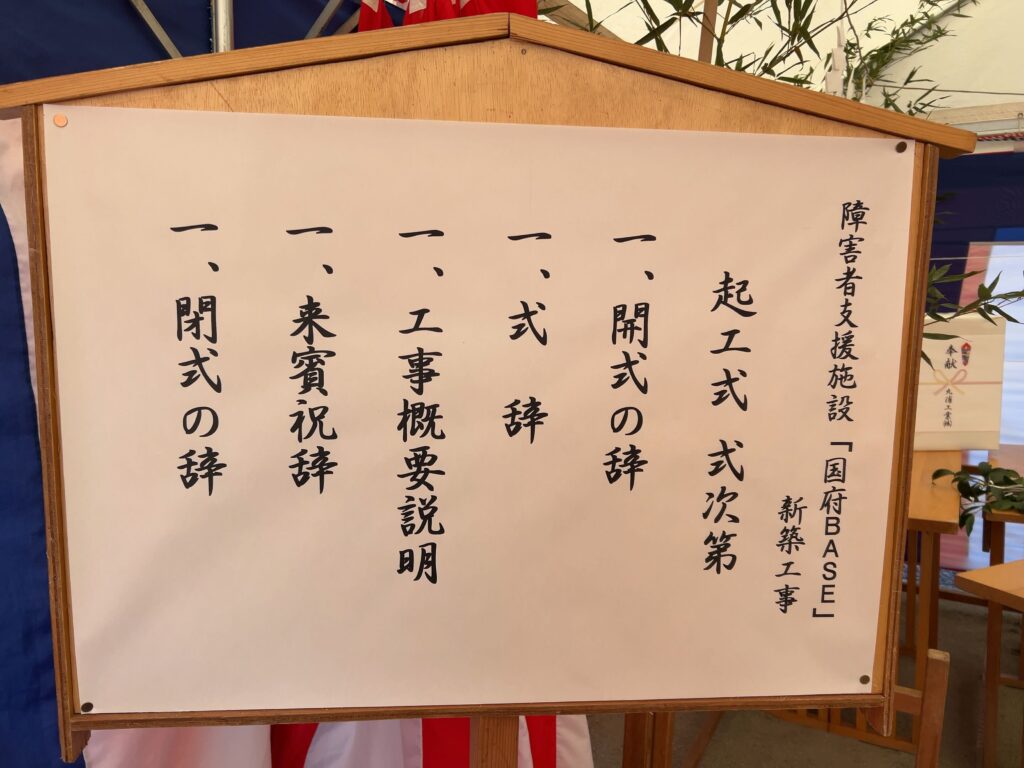 障害者支援施設「国府BASE」
新築工事
起工式 式次第
一、開式の辞
一、式 辞
一、工事概要説明
一、来賓祝辞
一、閉式の辞
奉献
丸浦工業㈱